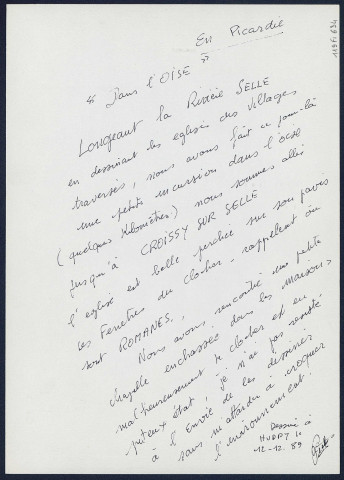 119 Fi 634
En Picardie
" Dans l'OISE "
Longeant la Rivière SELLE
en dessinant les eglises des villages
traversés, nous avons fait ce jour-là
une petite incursion dans l'OISE
(quelques Kilomètres) nous sommes allés
jusqu'à CROISSY SUR SELLE
l'eglise est belle perchée sur son
les Fenêtres du clocher - rappelent
sont ROMANES.
Nous avons rencontré une petite
chapelle enchassée dans les maisons
malheureusement le clocher est en
piteux état, je n'ai pas resisté
à l'Envie de les dessiner
sans m'attarder à croquer
l'environnement.
Dessiné à
HUPPY le
12-12.89